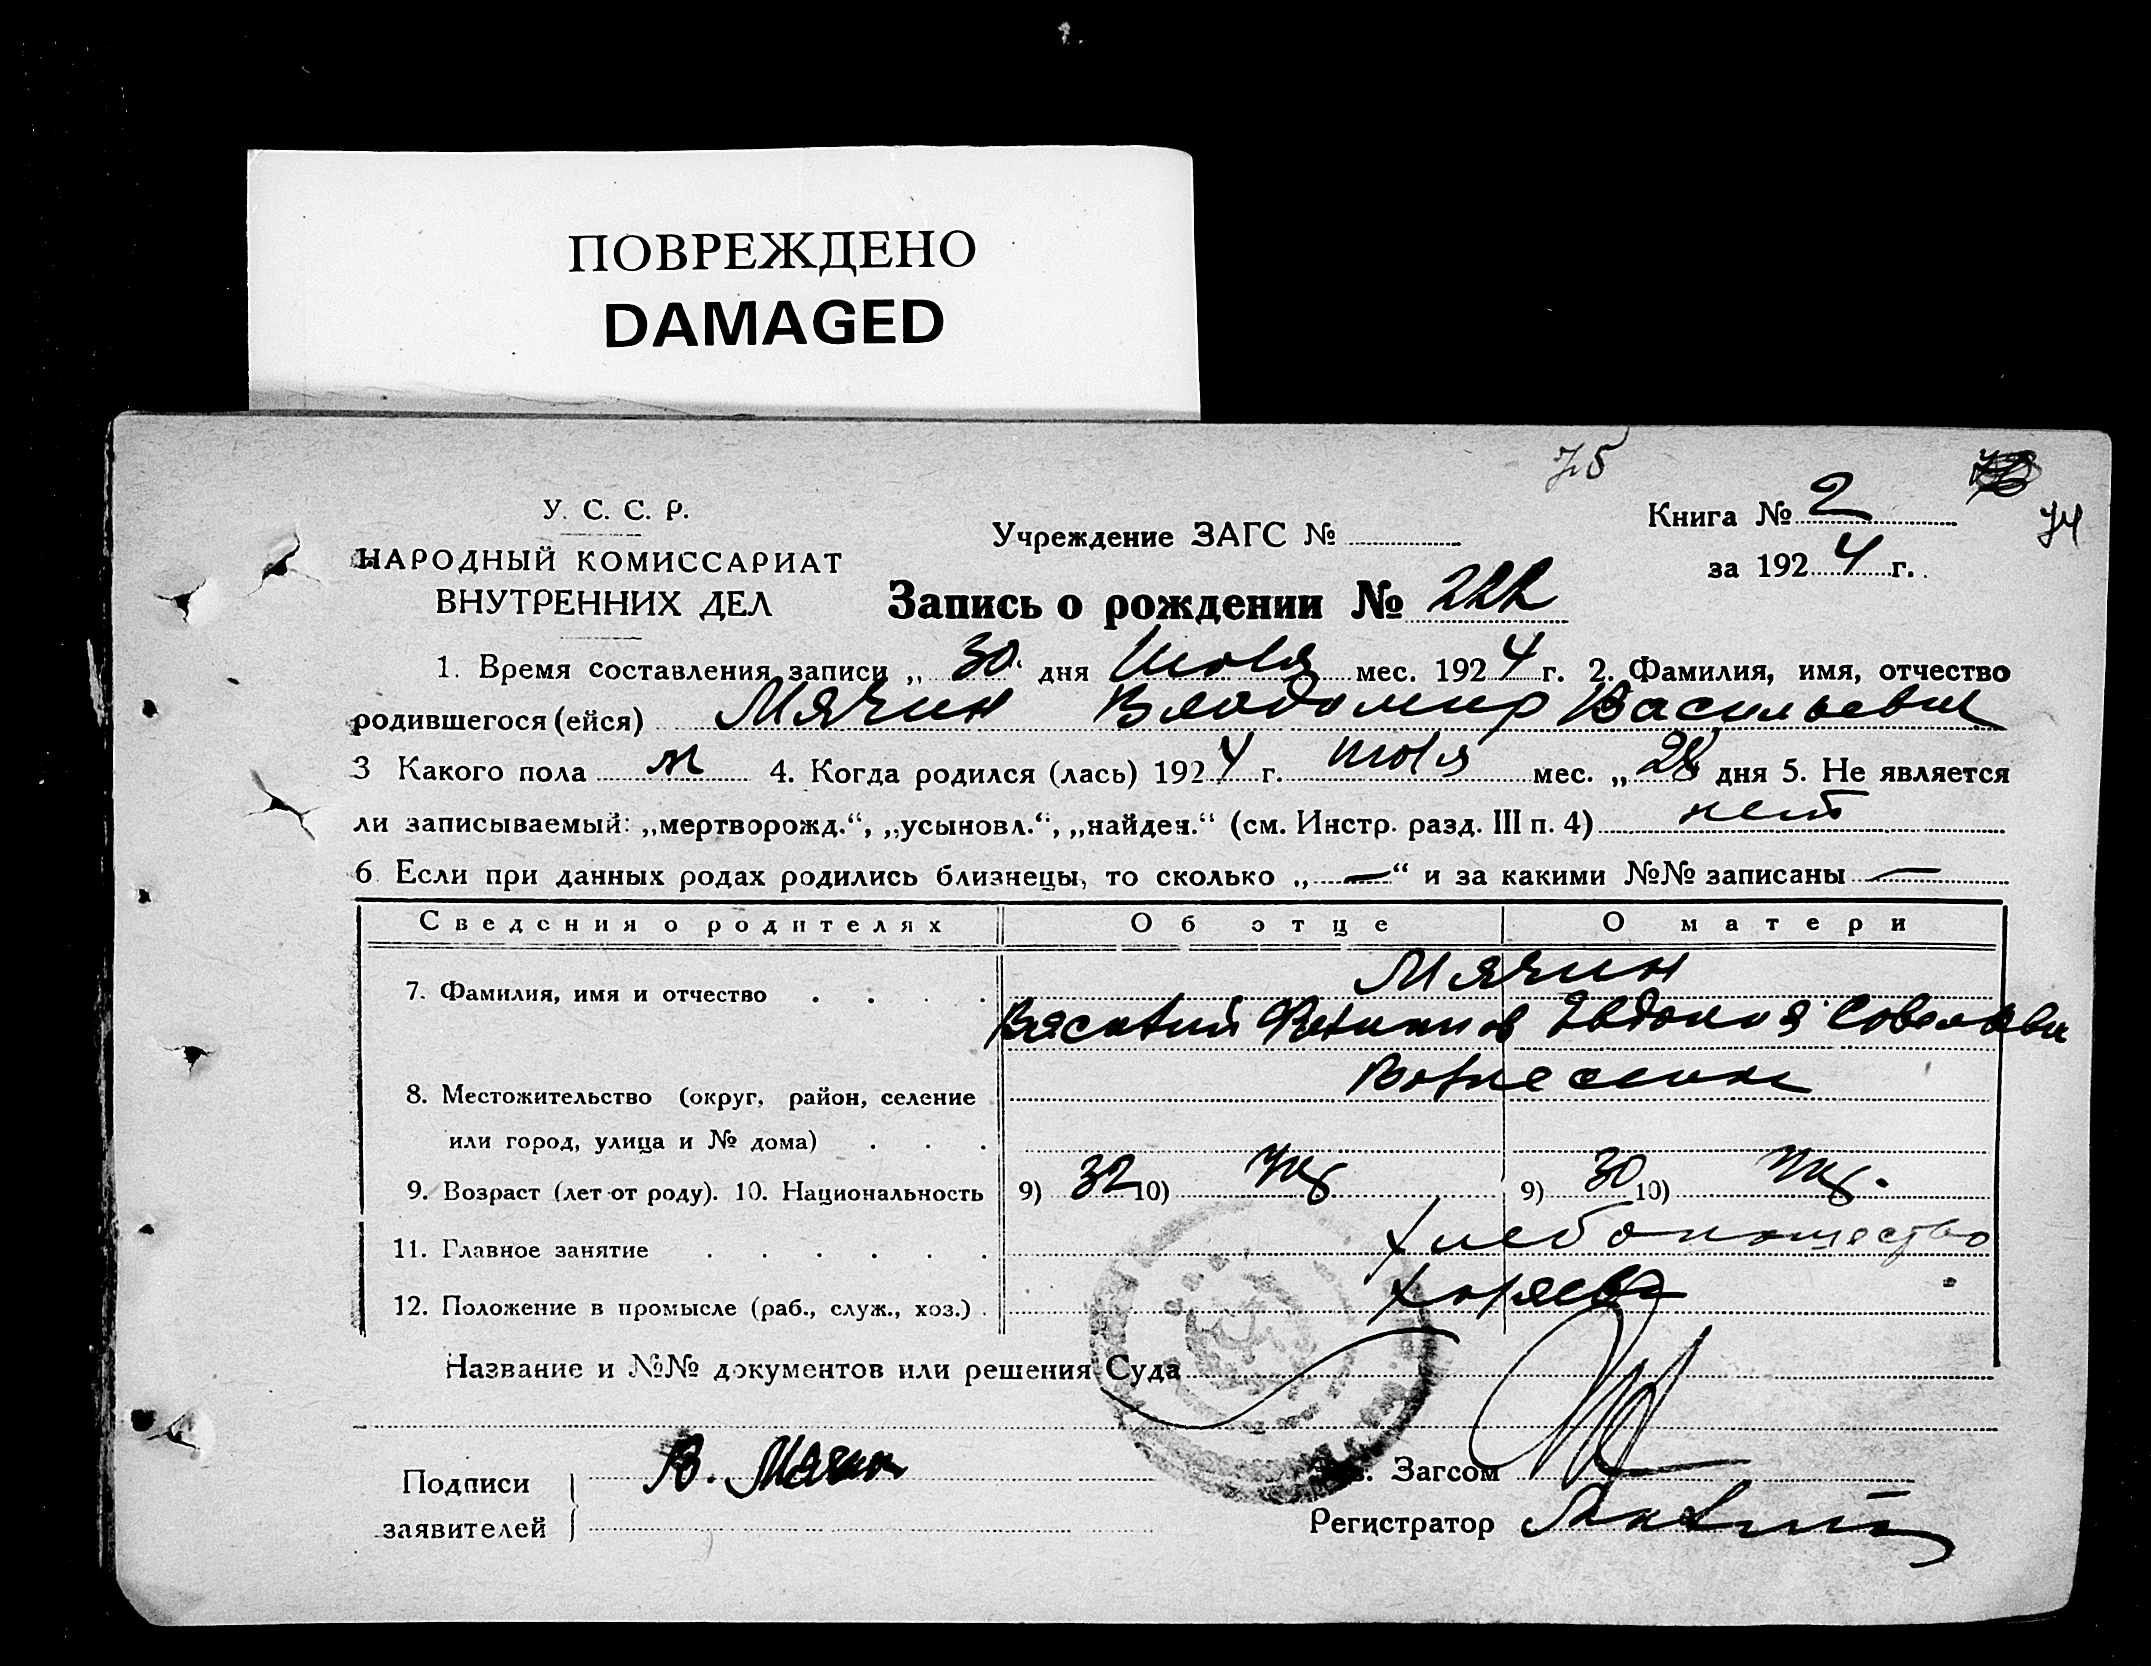 ПОВРЕЖДЕНО
DAMAGED
75
У. С. С. Р.
НАРОДНЫЙ КОМИССАРИАТ
ВНУТРЕННИХ ДЕЛ
Учреждение ЗАГС №
Книга № 2
74
за 1924 г.
Запись о рождении № 222
1. Время составления записи „ 30 “ дня Июля мес. 1924 г. 2. Фамилия, имя, отчество
родившегося (ейся) Мячин Владимир Васильевич
3 Какого пола м 4. Когда родился (лась) 1924 г. июля мес. „ 28 дня 5. Не является
ли записываемый: „мертворожд.“, „усыновл.“, „найден.“ (см. Инстр. разд. III п. 4) нет
6. Если при данных родах родились близнецы, то сколько „ — “ и за какими №№ записаны —
Сведения о родителях Об отце О матери
7. Фамилия, имя и отчество . . . . Мячин
Василий Евдокия
8. Местожительство (округ, район, селение
или город, улица и № дома) . . .
9. Возраст (лет от роду). 10. Национальность 9) 32 10) 9) 30 10)
11. Главное занятие . . . . . . Хлебопашество
12. Положение в промысле (раб., служ., хоз.) . хозяева
Название и №№ документов или решения Суда
Подписи
заявителей
В. Мячин
Зав. Загсом
Регистратор